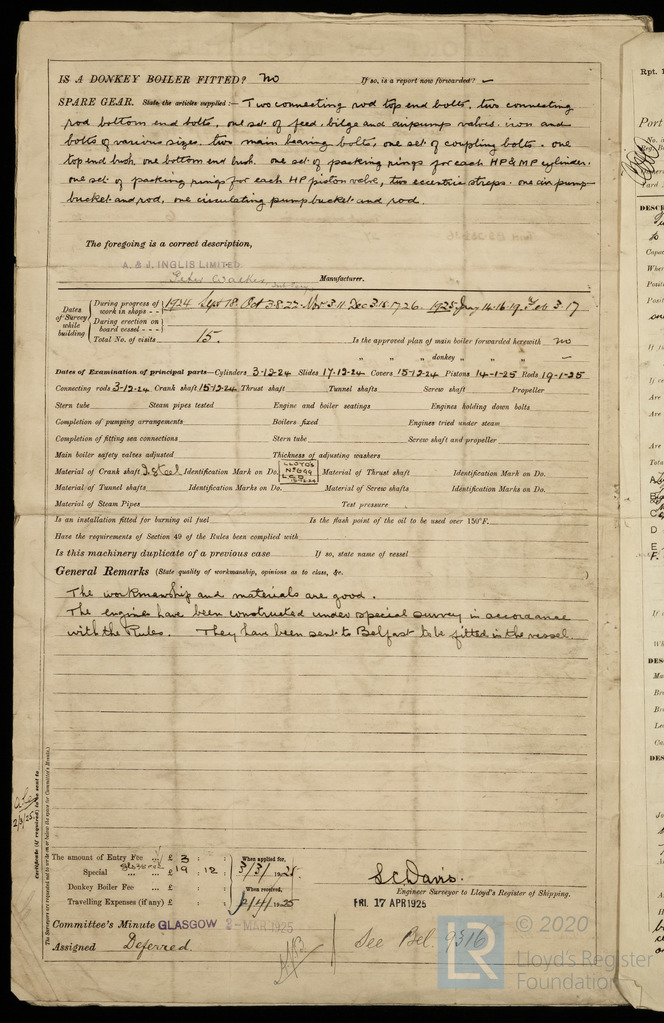 IS A DONKEY BOILER FITTED? no If so, is a report now forwarded? —
SPARE GEAR. State the articles supplied:— Two connecting rod top end bolts, two connecting
rod bottom end bolts, one set of feed, bilge and airpump valves. iron and
bolts of various sizes. two main bearing bolts, one set of coupling bolts. one
top end bush. one bottom end bush. one set of packing rings for each HP & MP cylinder.
one set of packing rings for each HP piston valve, two eccentric straps. one air pump
bucket and rod, one circulating pump bucket and rod.
The foregoing is a correct description,
A. & J. INGLIS LIMITED
Manufacturer.
Dates of Survey while building
During progress of work in shops - - 1924 Sept 18. Oct Nov 3 11 Dec 3. 15. 17. 26. 1925 Jany 14. 16. 19. Feb 3. 17
During erection on board vessel - - -
Total No. of visits 15. Is the approved plan of main boiler forwarded herewith no
" " " donkey " " " —
Dates of Examination of principal parts—Cylinders 3-12-24 Slides 17-12-24 Covers 15-12-24 Pistons 14-1-25 Rods 19-1-25
Connecting rods 3-12-24 Crank shaft 15-12-24 Thrust shaft Tunnel shafts Screw shaft Propeller
Stern tube Steam pipes tested Engine and boiler seatings Engines holding down bolts
Completion of pumping arrangements Boilers fixed Engines tried under steam
Completion of fitting sea connections Stern tube Screw shaft and propeller
Main boiler safety valves adjusted Thickness of adjusting washers
Material of Crank shaft Steel Identification Mark on Do. LLOYD'S Material of Thrust shaft Identification Mark on Do.
Material of Tunnel shafts Identification Marks on Do. Material of Screw shafts Identification Marks on Do.
Material of Steam Pipes Test pressure
Is an installation fitted for burning oil fuel Is the flash point of the oil to be used over 150°F.
Have the requirements of Section 49 of the Rules been complied with
Is this machinery duplicate of a previous case If so, state name of vessel
General Remarks (State quality of workmanship, opinions as to class, &c.
The workmanship and materials are good.
The engines have been constructed under special survey in accordance
with the Rules. They have been sent to Belfast to be fitted in the vessel
Certificate (if required) to be sent to
The amount of Entry Fee ... £ 3 : : When applied for,
Special ... £ 19 : 12 : 3/3/1925
Donkey Boiler Fee ... £ : : When received,
Travelling Expenses (if any) £ : : 1925
S.C. Davis.
Engineer Surveyor to Lloyd's Register of Shipping.
FRI. 17 APR 1925
Committee's Minute GLASGOW 3-MAR 1925
Assigned Deferred.
See Bel. 9316
LR
© 2020
Lloyd's Register
Foundation
Rpt.
Port